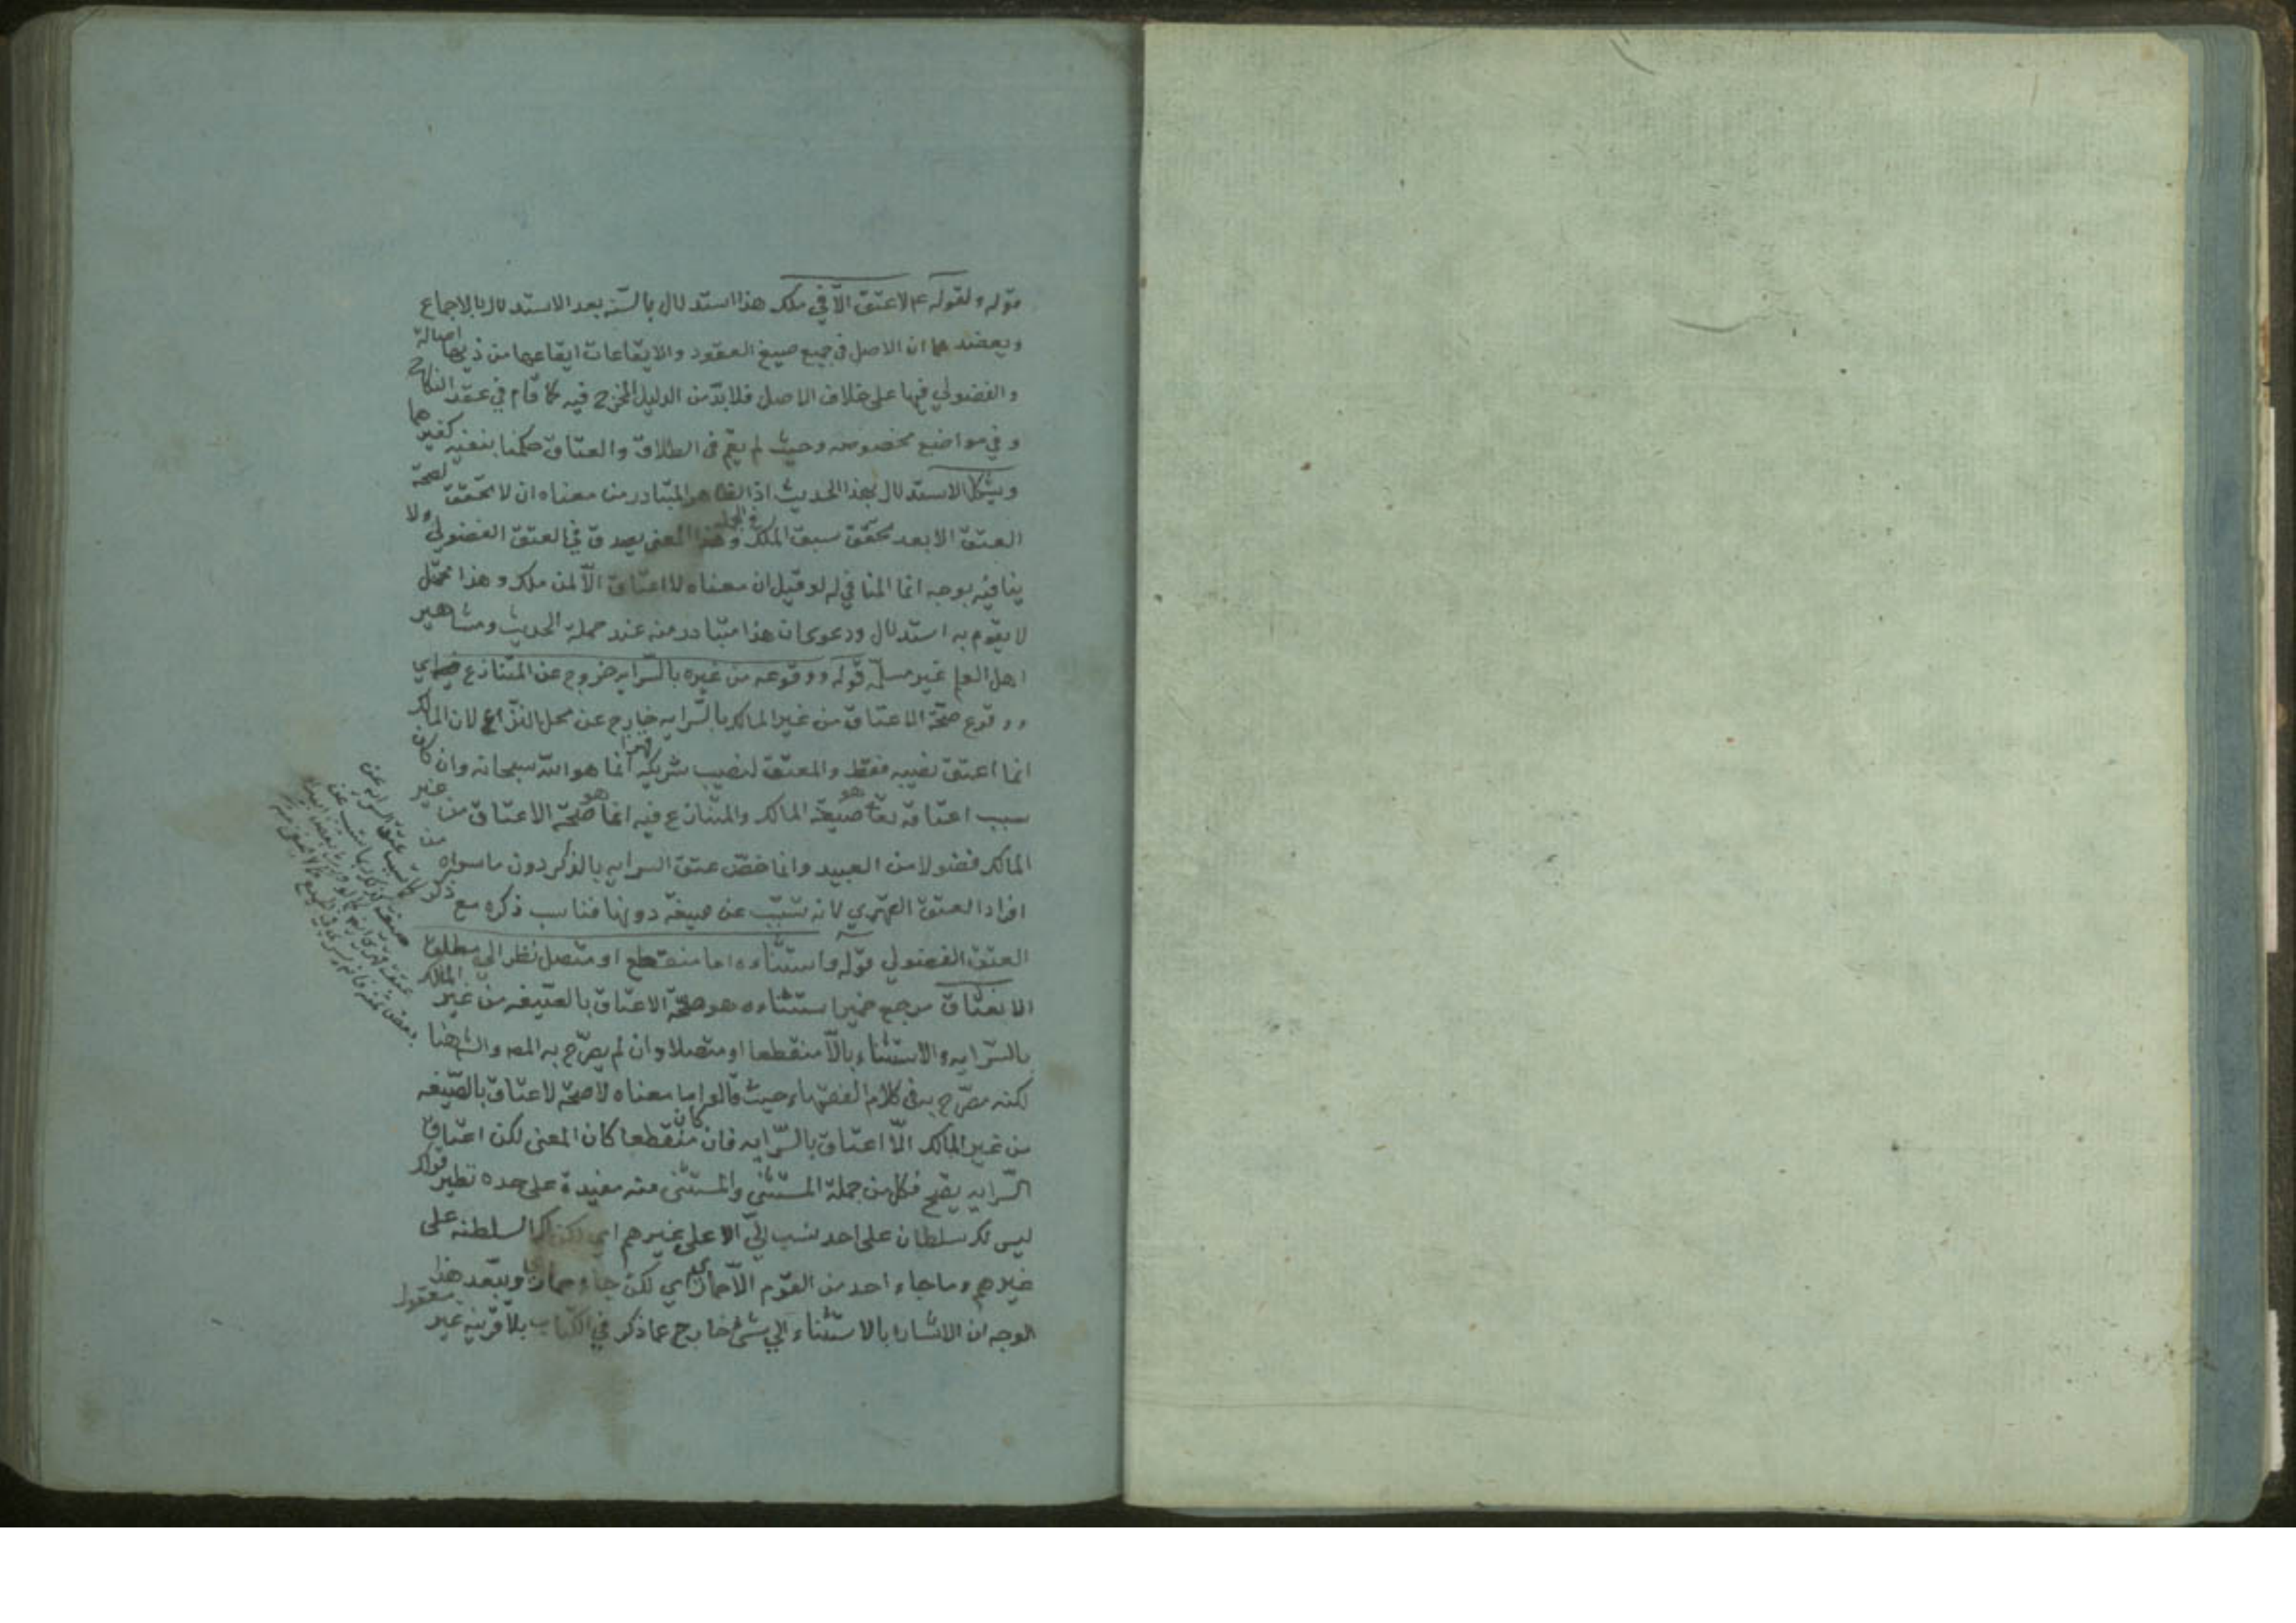 قوله ولقوله عم لا عتق الّا في ملك هذا استدلال بالسّنه بعد الاستدلال بالاجماع
ويعضدهما ان الاصل في جميع صيغ العقود والايقاعات ايقاعها من ذيها اصالة
والفضولي فيها على خلاف الاصل فلا بدّ من الدليل المخرج فيه كما قام في عقد النكاح
وفي مواضع مخصوصه وحيث لم يقم في الطلاق والعتاق حكمنا بنفيه كغيرهما
ويشكل الاستدلال بهذا الحديث اذ الظاهر المتبادر من معناه ان لا تحقق لصحة
العتق الا بعد تحقق سبق الملك في الجمله وهذا المعنى يصدق في العتق الفضولي ولا
ينافيه بوجه انما المنافي له لو قيل ان معناه لا اعتاق الّا لمن ملك وهذا محتمل
لا يقوم به استدلال ودعوى ان هذا متبادر منه عند حملة الحديث ومشاهير
اهل العلم غير مسلّمه قوله ووقوعه من غيره بالسّرايه خروج عن المتنازع فيه اي
ووقوع صحّة الاعتاق من غير المالك بالسّرايه خارج عن محل النزاع لان المالك
انما اعتق نصيبه فقط والمعتق لنصيب شريكه قهرا انما هو الله سبحانه وان كان
سبب اعتاقه تعا هو صيغة المالك والمتنازع فيه انما هو صحّة الاعتاق من غير
المالك فضولا من العبيد وانما خصّ عتق السرايه بالذكر دون ما سواه من
افراد العتق القهري لانه تسبّب عن صيغة دونها فناسب ذكره مع ذكر
العتق الفضولي قوله واستثناءه اما منقطع او متصل نظرا الي مطلق
الانعتاق مرجع ضمير استثناءه هو صحّة الاعتاق بالصّيغه من غير المالك
بالسّرايه والاستثناء بالّا منقطعا او متصلا وان لم يصرّح به المص والش هنا
لكنه مصرّح به في كلام الفقهاء حيث قالوا ما معناه لا صحّة لاعتاق بالصّيغه
من غير المالك الّا اعتاق بالسّرايه فان كان منقطعا كان المعنى لكن اعتاق
السّرايه يصح فكل من جملة المستثنى والمستثنى منه مفيدة على حده نظير قولك
ليس لك سلطان على احد نسب اليّ الا على غيرهم اي لكن لك السلطنه على
غيرهم وما جاء احد من القوم الّا حمار اي لكن جاء حمار ويبعّد هذا
الوجه ان الاشارة بالاستثناء الي شئ خارج عما ذكر في الكتاب بلا قرينه غير معقول